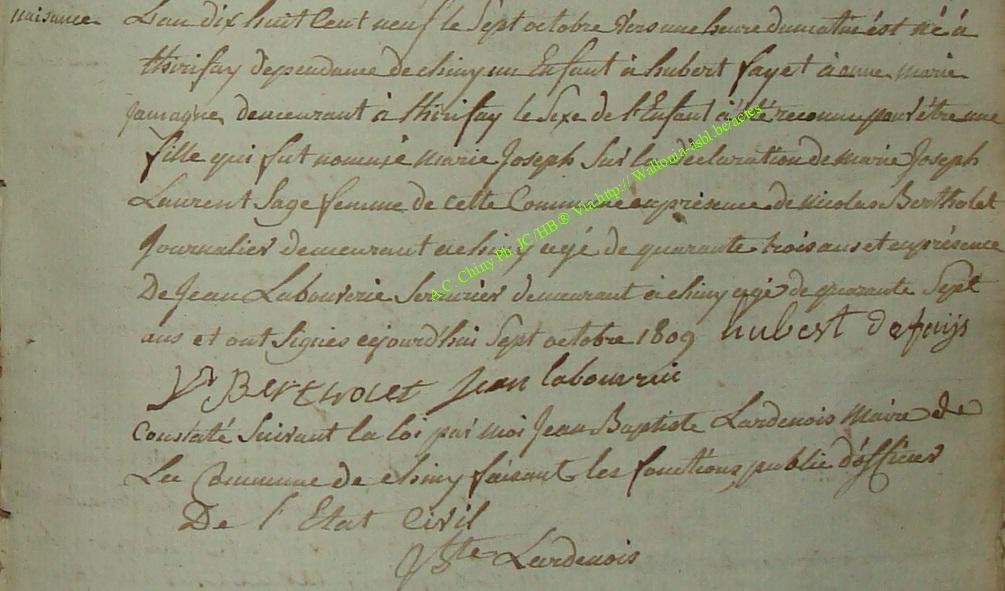 naisance L'an dix huit Cent neuf le Sept octobre vers une heure du matin est né à
thirifay dependame de chiny un Enfant à hubert fayet à anne marie
jamagne demeurant à thirifay le Sexe de l'Enfant à été reconnu pour être une
fille qui fut nommé marie Joseph Sur la déclaration de marie Joseph
Laurent Sage femme de cette Commune en présence de Nicolas Bertholet
Journalier demeurant à chiny agé de quarante trois ans et en présence
De Jean Labouverie Serurier demeurant à chiny agé de quarante Sept
ans et ont Signés cejourd'hui Sept octobre 1809 hubert defays
Bertholet Jean labouverie
Constaté Suivant la loi par moi Jean Baptiste Lardenois Maire de
La Commune de chiny faisant les fonctions public d'officier
De l'Etat Civil
Jbte Lardenois
A.C. Chiny Ph JC/HB® Via http:// Wallonia-asbl.be/actes